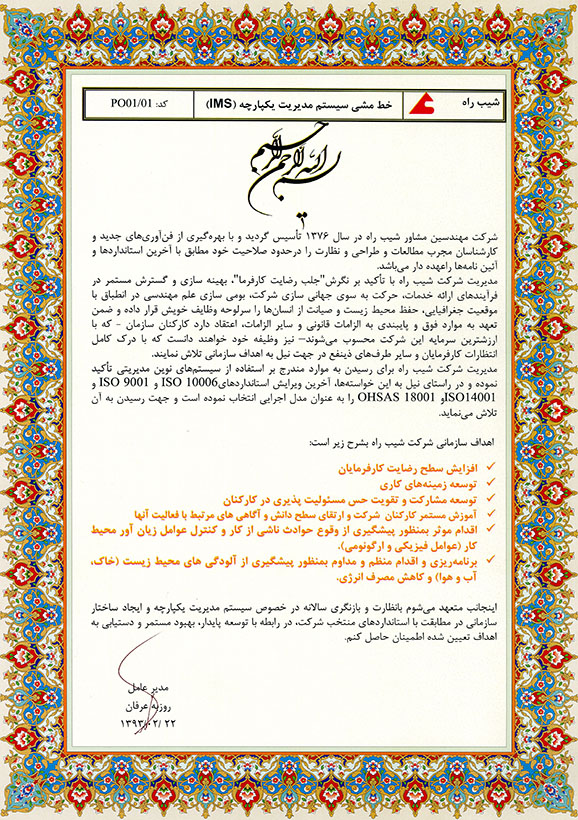 شیب راه
خط مشی سیستم مدیریت یکپارچه (IMS)
کد: PO01/01
بسم الله الرحمن الرحیم
شرکت مهندسین مشاور شیب راه در سال ۱۳۷۶ تأسیس گردید و با بهره‌گیری از فن‌آوری‌های جدید و
کارشناسان مجرب مطالعات و طراحی و نظارت را درحدود صلاحیت خود مطابق با آخرین استانداردها و
آئین نامه‌ها راعهده دار می‌باشد.
مدیریت شرکت شیب راه با تأکید بر نگرش"جلب رضایت کارفرما"، بهینه سازی و گسترش مستمر در
فرآیندهای ارائه خدمات، حرکت به سوی جهانی سازی شرکت، بومی سازی علم مهندسی در انطباق با
موقعیت جغرافیایی، حفظ محیط زیست و صیانت از انسان‌ها را سرلوحه وظایف خویش قرار داده و ضمن
تعهد به موارد فوق و پایبندی به الزامات قانونی و سایر الزامات، اعتقاد دارد کارکنان سازمان - که با
ارزشترین سرمایه این شرکت محسوب می‌شوند– نیز وظیفه خود خواهند دانست که با درک کامل
انتظارات کارفرمایان و سایر طرف‌های ذینفع در جهت نیل به اهداف سازمانی تلاش نمایند.
مدیریت شرکت شیب راه برای رسیدن به موارد مندرج بر استفاده از سیستم‌های نوین مدیریتی تأکید
نموده و در راستای نیل به این خواسته‌ها، آخرین ویرایش استانداردهای ISO 10006 و ISO 9001 و
ISO14001و OHSAS 18001 را به عنوان مدل اجرایی انتخاب نموده است و جهت رسیدن به آن
تلاش می‌نماید.
اهداف سازمانی شرکت شیب راه بشرح زیر است:
✓ افزایش سطح رضایت کارفرمایان
✓ توسعه زمینه‌های کاری
✓ توسعه مشارکت و تقویت حس مسئولیت پذیری در کارکنان
✓ آموزش مستمر کارکنان شرکت و ارتقای سطح دانش و آگاهی های مرتبط با فعالیت آنها
✓ اقدام موثر بمنظور پیشگیری از وقوع حوادث ناشی از کار و کنترل عوامل زیان آور محیط
کار (عوامل فیزیکی و ارگونومی).
✓ برنامه‌ریزی و اقدام منظم و مداوم بمنظور پیشگیری از آلودگی های محیط زیست (خاک،
آب و هوا) و کاهش مصرف انرژی.
اینجانب متعهد می‌شوم بانظارت و بازنگری سالانه در خصوص سیستم مدیریت یکپارچه و ایجاد ساختار
سازمانی در مطابقت با استانداردهای منتخب شرکت، در رابطه با توسعه پایدار، بهبود مستمر و دستیابی به
اهداف تعیین شده اطمینان حاصل کنم.
مدیر عامل
روزبه عرفان
۱۳۹۳/۰۲/۲۲